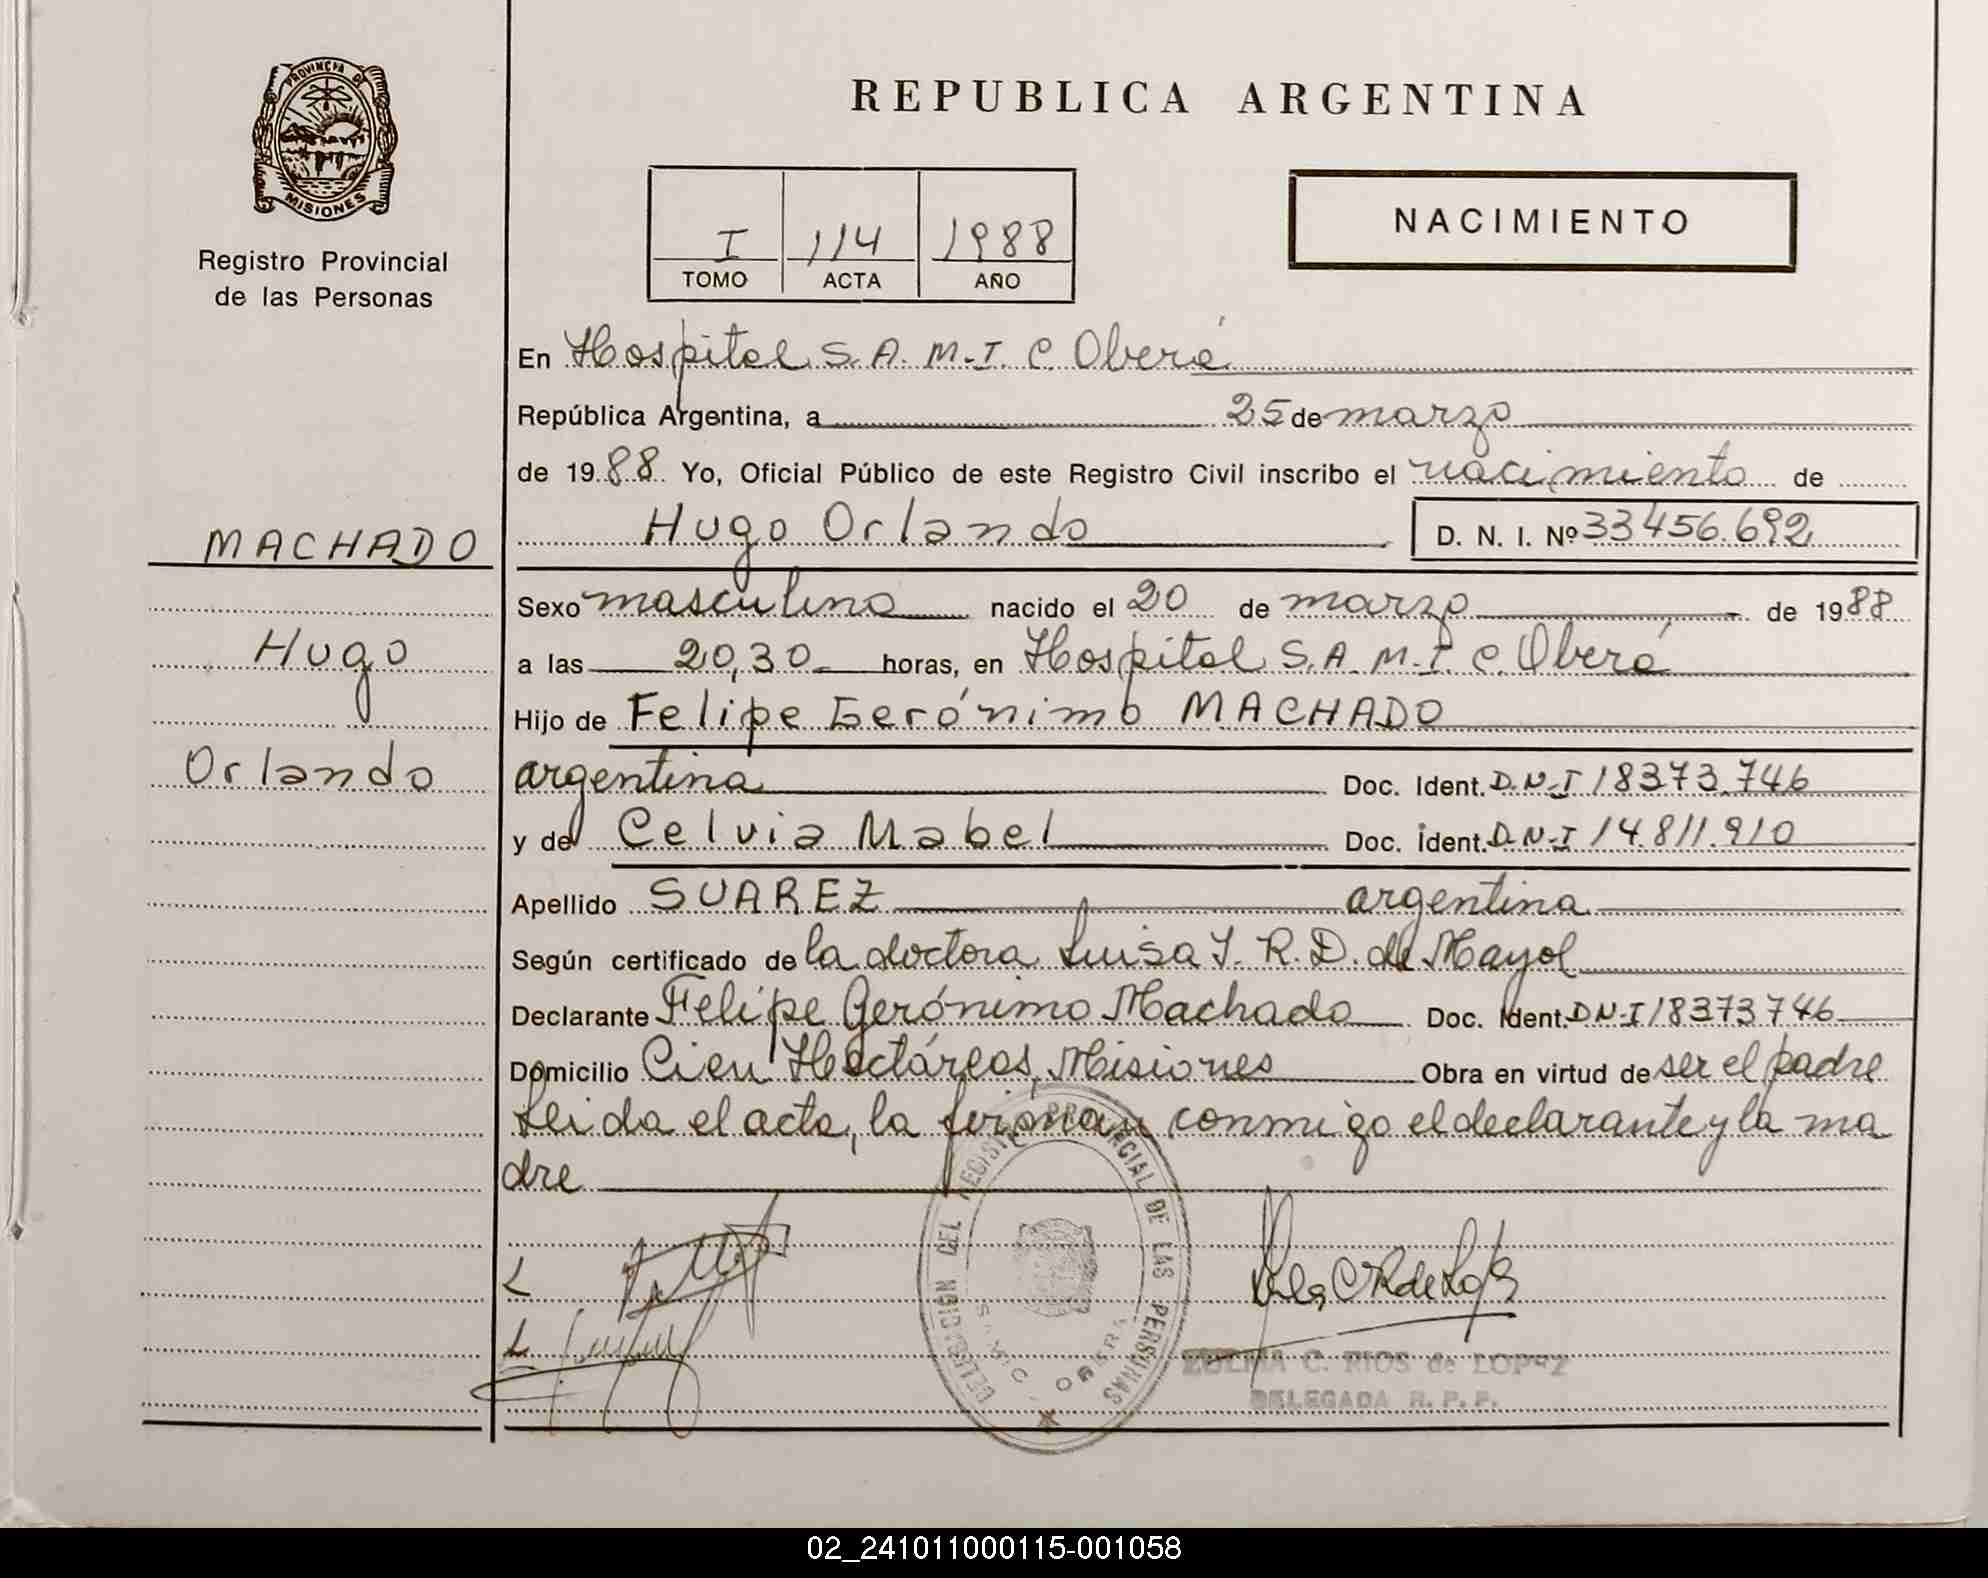 PROVINCIA DE
MISIONES
Registro Provincial
de las Personas
REPUBLICA ARGENTINA
I 114 1988
TOMO ACTA AÑO
NACIMIENTO
En Hospital S.A.M.I.C. Oberá
República Argentina, a 25 de marzo
de 1988 Yo, Oficial Público de este Registro Civil inscribo el nacimiento de
MACHADO
Hugo Orlando D. N. I. Nº 33456.692
Sexo masculino nacido el 20 de marzo de 1988
Hugo
a las 20,30 horas, en Hospital S.A.M.I.C. Oberá
Hijo de Felipe Gerónimo MACHADO
Orlando
argentina Doc. Ident. D.N.I 18373.746
y de Celvia Mabel Doc. ident. D.N.I 14.811.910
Apellido SUAREZ argentina
Según certificado de la doctora Luisa R. D. de Mayol
Declarante Felipe Gerónimo Machado Doc. Ident. D.N.I 18373746
Domicilio Cien Hectáreas, Misiones Obra en virtud de ser el padre
Leida el acta, la firman conmigo el declarante y la ma
dre
DELEGACION DEL REGISTRO PROVINCIAL DE LAS PERSONAS
SAMIC - OBERA
ZULMA C. RIOS de LOPEZ
DELEGADA R. P. P.
02_241011000115-001058